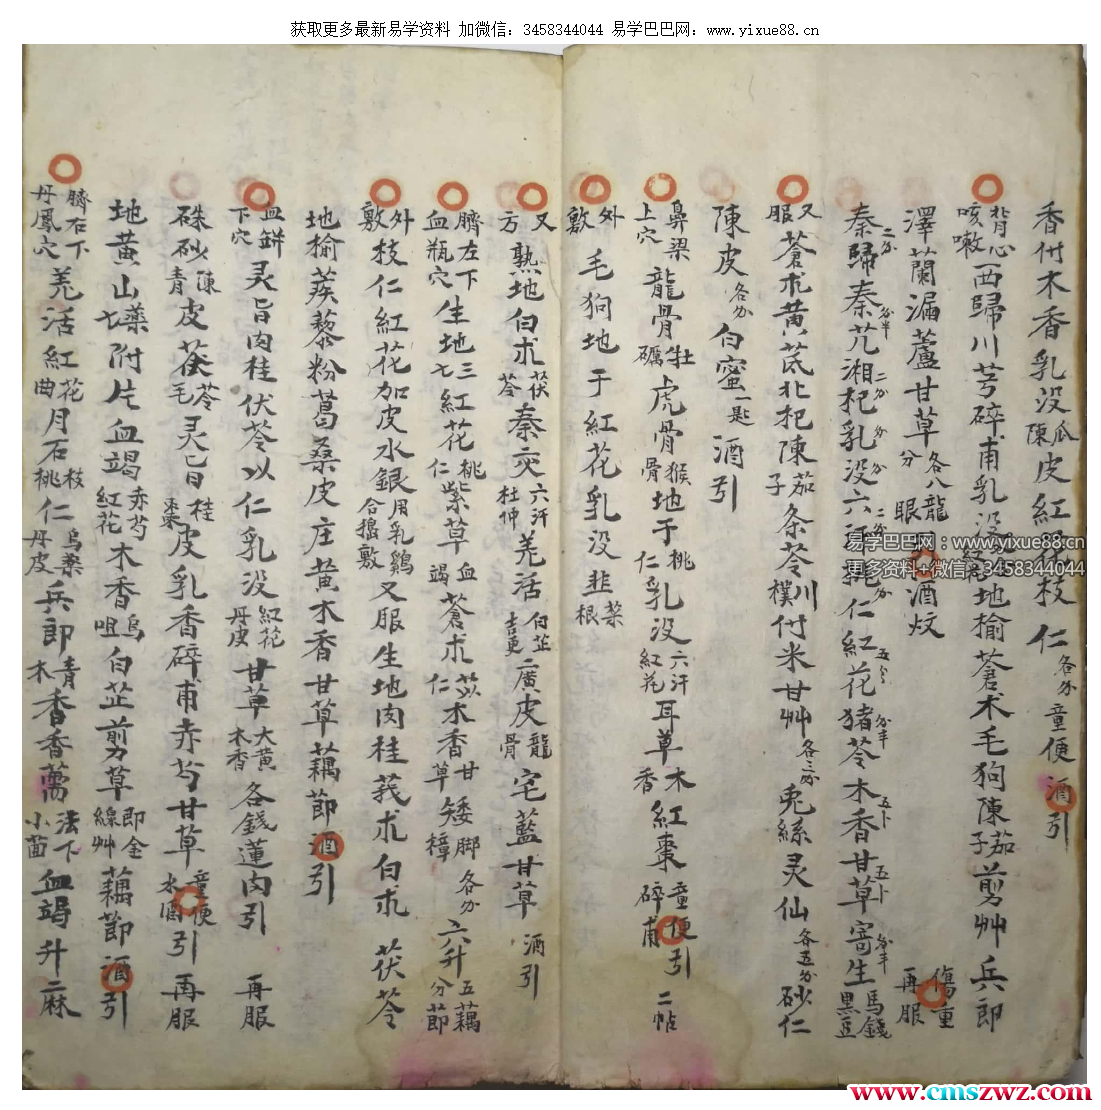 获取更多最新易学资料 加微信：3458344044 易学巴巴网：www.yixue88.cn
香付木香乳没瓜陳皮紅花枝仁各分童便酒引
背心咳嗽西歸川芎碎甫乳没地榆蒼术毛狗陳茄子剪艸兵郎
澤蘭漏蘆甘草各八分龍眼酒炆傷重再服
秦歸二分秦艽分半湘杞二分乳没分六汗二分仁紅花五分猪苓分半木香五卜甘草五卜寄生分半馬錢黑豆
又服蒼朮黄芪北杞陳茄子条苓川樸付米甘艸各三分兎絲灵仙各五分砂仁
陳皮各分白蜜一匙酒引
鼻梁上穴龍骨牡礪虎骨猴骨地于桃仁乳没六汗紅花耳草木香紅棗碎甫童便引二帖
外敷毛狗地于紅花乳没韭菜根
又方熟地白朮茯苓秦交六汗杜仲羌活白芷吉更廣皮龍骨宅藍甘草酒引
臍左下血瓶穴生地三七紅花桃仁紫草血竭蒼朮苡仁木香甘草矮脚樟各分六升五分藕節
外敷枝仁紅花加皮水銀用乳鷄合搗敷又服生地肉桂莪朮白朮茯苓
地榆蒺藜粉葛桑皮庄黄木香甘草藕節酒引
血餅下穴灵旨肉桂伏苓以仁乳没紅花丹皮甘草大黄木香各錢蓮肉引再服
硃砂陳青皮茯苓毛灵旨桂棗皮乳香碎甫赤芍甘草童便水酒引再服
地黄山藥七附片血竭赤芍紅花木香烏咀白芷剪草即金線艸藕節酒引
臍右下丹鳳穴羌活紅花曲月石枝桃仁烏藥丹皮兵郎青木香香薷法下小茴血竭升二麻
易学巴巴网：www.yixue88.cn
更多资料+微信：3458344044
www.cmszwz.com